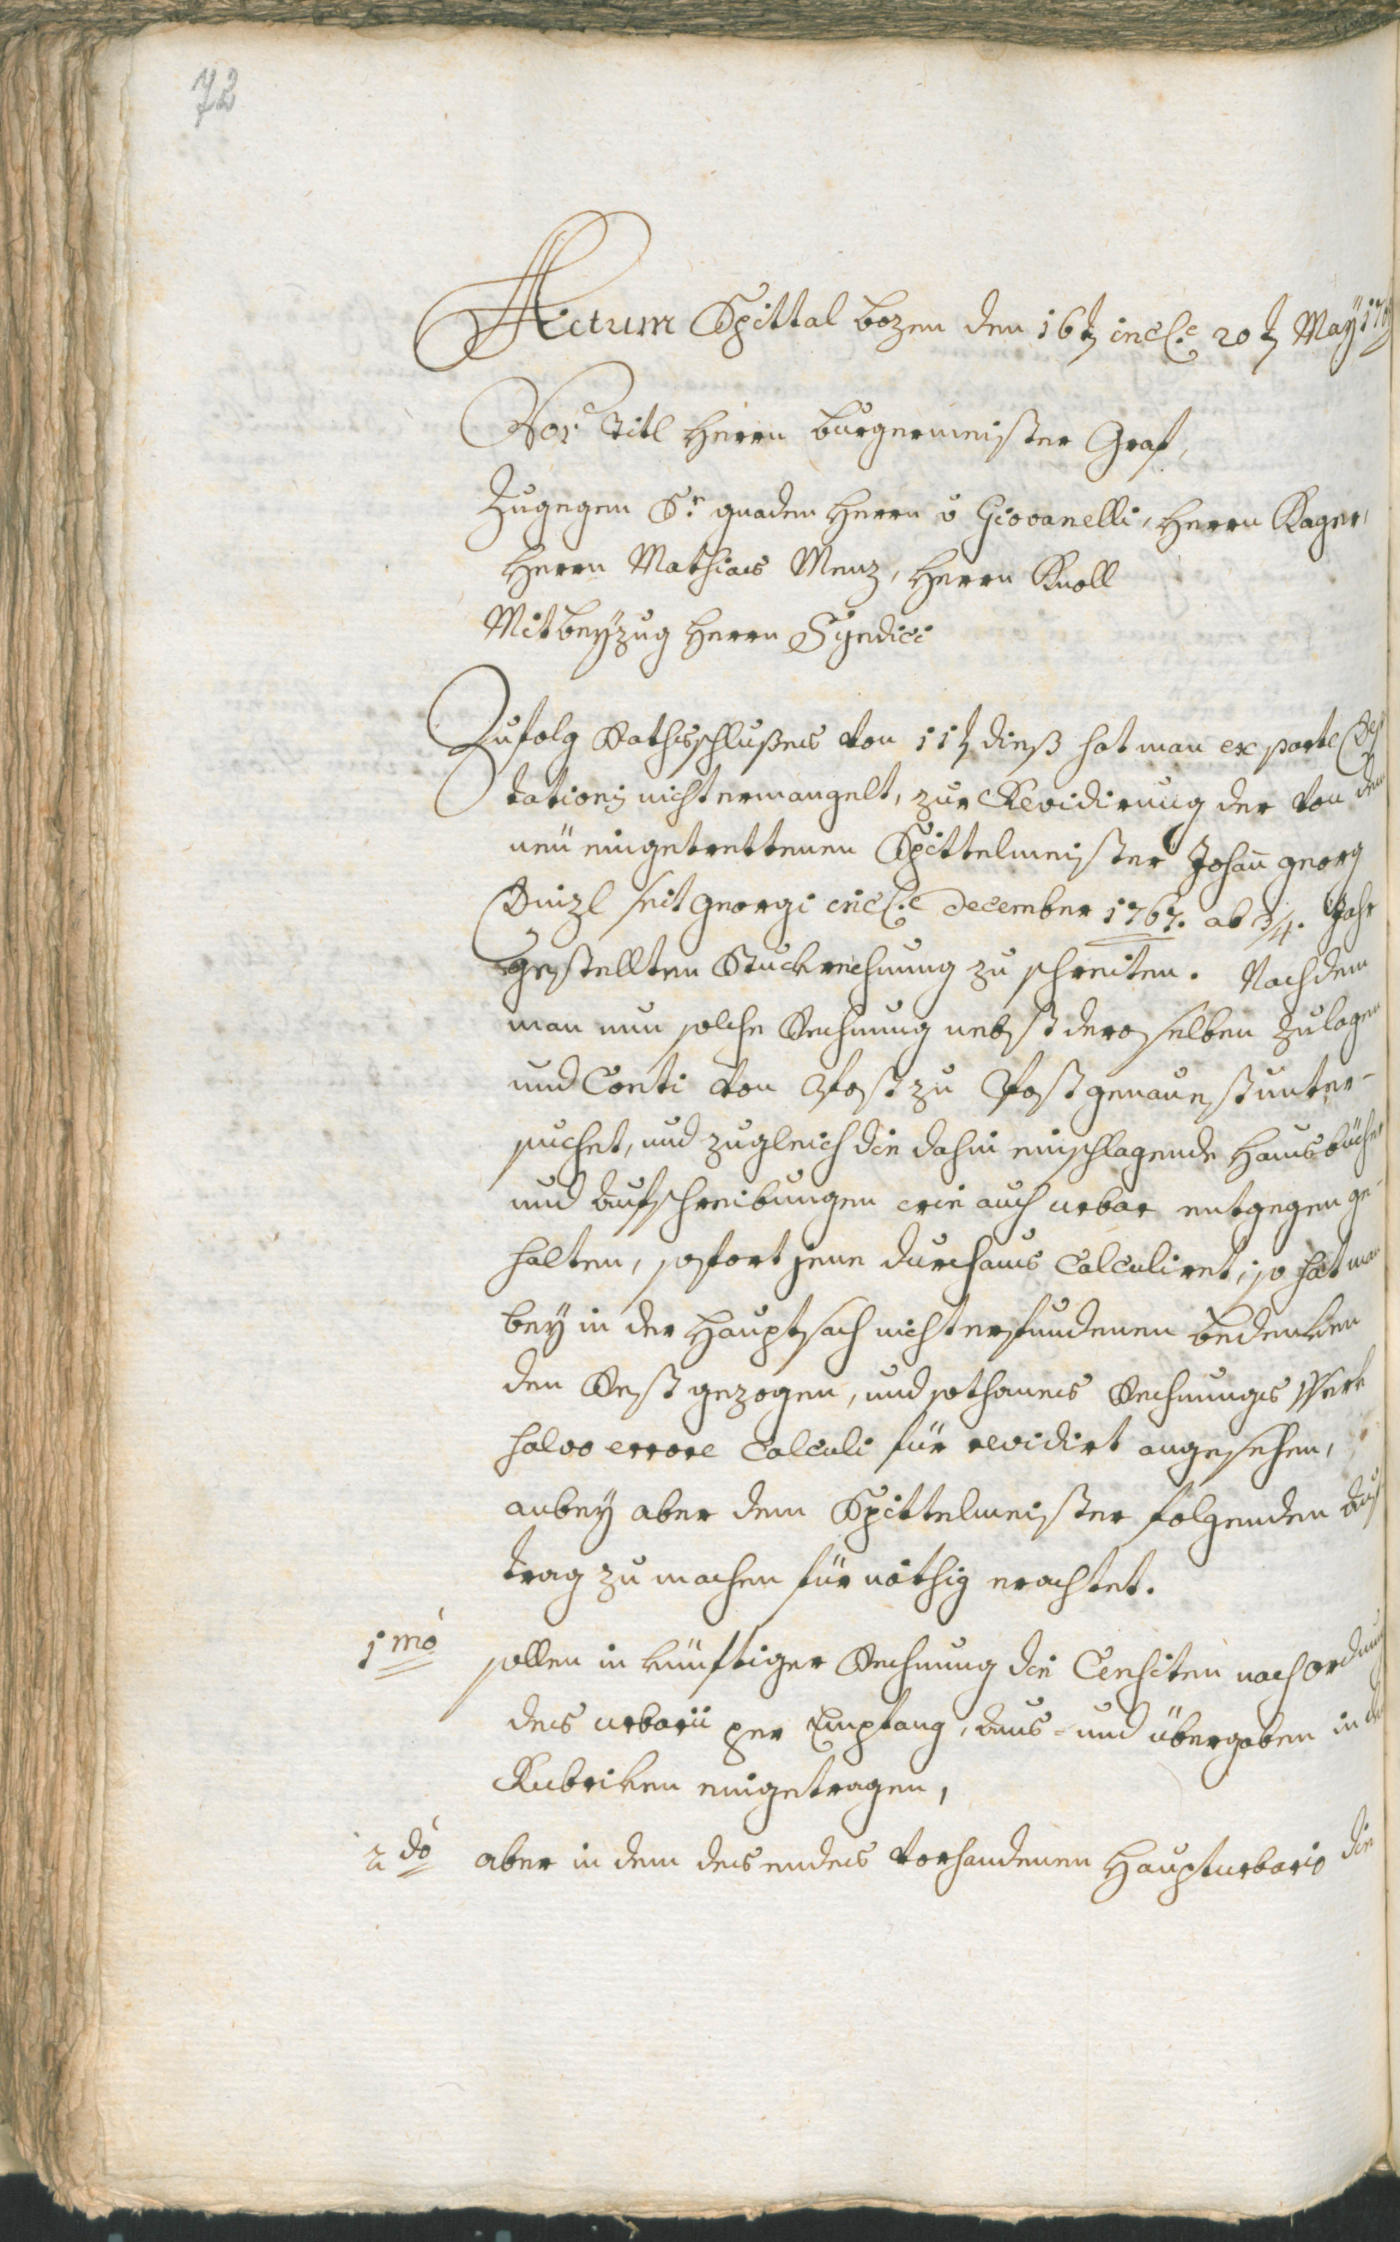 72
Actum Spittal bozen den 16t incl.e 20t Maÿ
Vor Titl Herrn burgermeister Graf,
Zugegen Sr gnaden Herrn v Giovanelli, Herrn Kager,
Herrn Mathias Menz, Herrn Knoll
Mitbeÿzug Herrn Syndici
Zufolg Rathsschlußes von 11t dieß hat man ex parte
tationis nicht ermangelt, zur Revidirung der von dem
neu eingetrettenen Spittelmeister Johan georg
seit georgi incl.e December 1767. ab 3/4. Jahr
gestellten Stuckrechnung zu schreiten. Nachdem
man nun solche Rechnung nebst deroselben Zulagen
und Conti von Post zu Post genauest unter-
suchet, und zugleich die dahin einschlagende Hausbücher
und aufschreibungen wie auch urbar entgegen ge-
halten, sofort jene durchaus Calculiret, so hat man
beÿ in der Hauptsach nicht erfundenen bedenken
den Rest gezogen, und sothanes Rechnungs Werk
salvo errore Calculi für revidirt angesehen,
anbeÿ aber dem Spittelmeister folgenden auf
trag zu machen für nöthig erachtet.
1mo sollen in künftiger Rechnung die Censiten nach ordnung
des urbarii per Empfang, aus- und übergaben in die
Rubriken eingetragen,
2do aber in dem des endes vorhandenen Haupturbario die